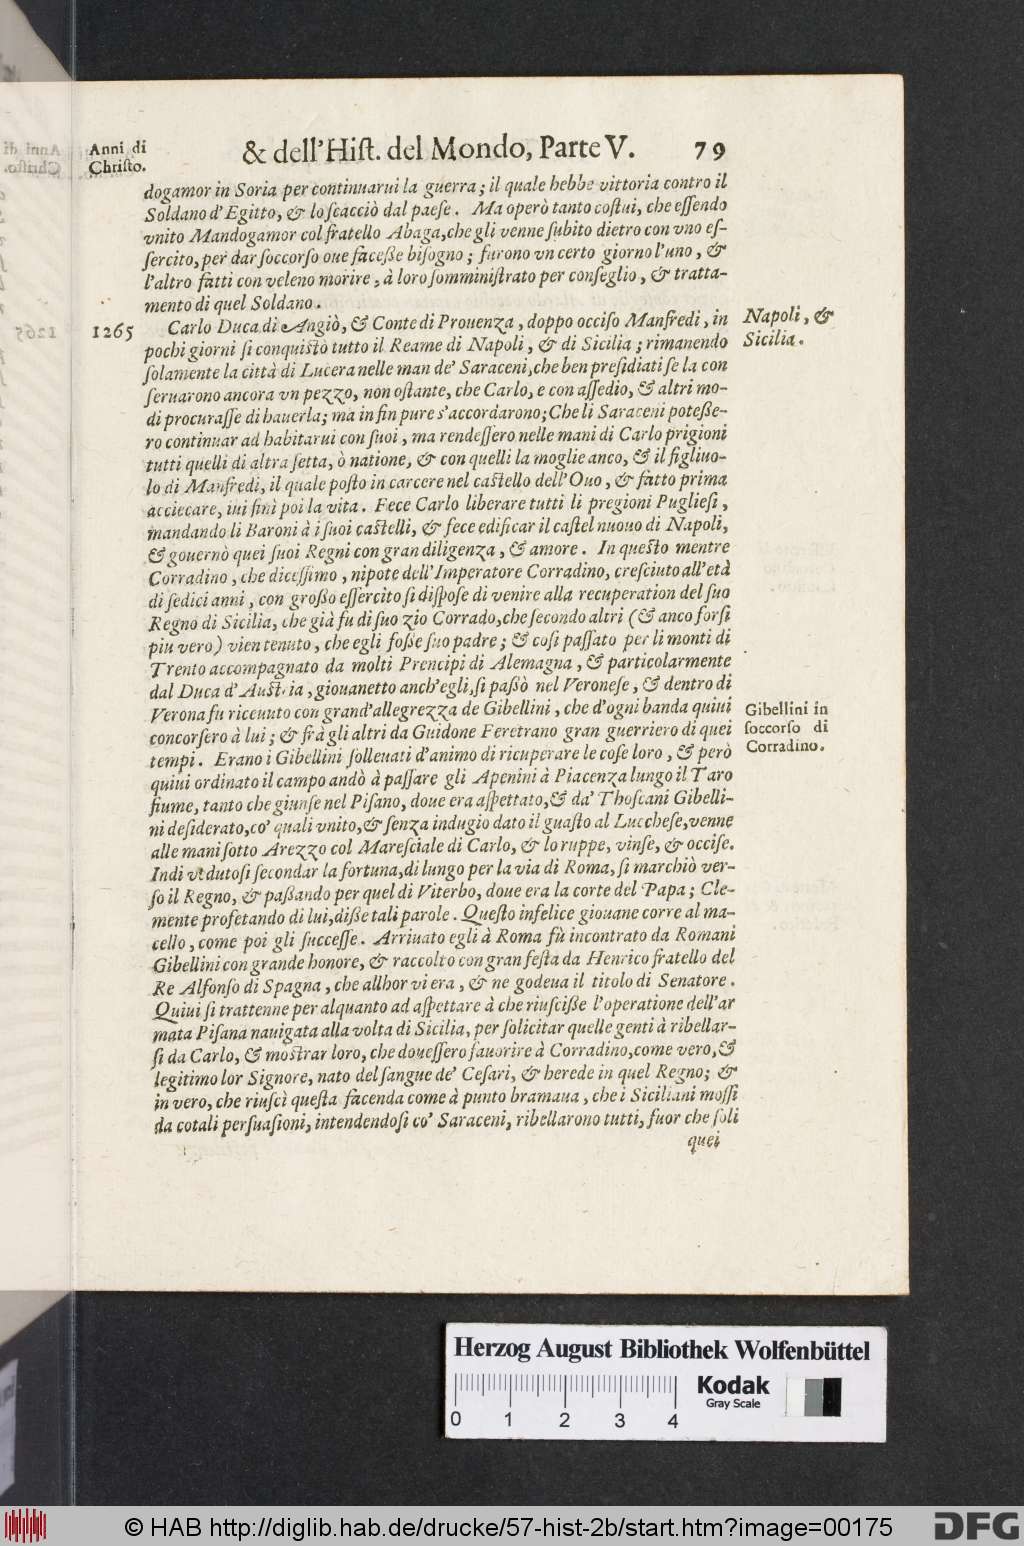 Anni di
Christo.
& dell'Hiſt. del Mondo, Parte V. 79
dogamor in Soria per continuarui la guerra; il quale hebbe vittoria contro il
Soldano d'Egitto, & lo ſcacciò dal paeſe. Ma operò tanto coſtui, che eſſendo
vnito Mandogamor col fratello Abaga, che gli venne ſubito dietro con vno eſ-
ſercito, per dar ſoccorſo oue faceſſe biſogno; furono vn certo giorno l'uno, &
l'altro fatti con veleno morire, à loro ſomminiſtrato per conſeglio, & tratta-
mento di quel Soldano.
1265 Carlo Duca di Angiò, & Conte di Prouenza, doppo occiſo Manfredi, in
Napoli, &
Sicilia.
pochi giorni ſi conquiſtò tutto il Reame di Napoli, & di Sicilia; rimanendo
ſolamente la città di Lucera nelle man de' Saraceni, che ben preſidiati ſe la con
ſeruarono ancora vn pezzo, non oſtante, che Carlo, e con aſſedio, & altri mo-
di procuraſſe di hauerla; ma in fin pure s'accordarono; Che li Saraceni poteſſe-
ro continuar ad habitarui con ſuoi, ma rendeſſero nelle mani di Carlo prigioni
tutti quelli di altra ſetta, ò natione, & con quelli la moglie anco, & il figliuo-
lo di Manfredi, il quale poſto in carcere nel caſtello dell'Ouo, & fatto prima
acciecare, iui finì poi la vita. Fece Carlo liberare tutti li pregioni Puglieſi,
mandando li Baroni à i ſuoi caſtelli, & fece edificar il caſtel nuouo di Napoli,
& gouernò quei ſuoi Regni con gran diligenza, & amore. In queſto mentre
Corradino, che diceſſimo, nipote dell'Imperatore Corradino, creſciuto all'età
di ſedici anni, con groſſo eſſercito ſi diſpoſe di venire alla recuperation del ſuo
Regno di Sicilia, che già fu di ſuo zio Corrado, che ſecondo altri (& anco forſi
piu vero) vien tenuto, che egli foſſe ſuo padre; & coſi paſſato per li monti di
Trento accompagnato da molti Prencipi di Alemagna, & particolarmente
dal Duca d'Auſtria, giouanetto anch'egli, ſi paſsò nel Veroneſe, & dentro di
Verona fu riceuuto con grand'allegrezza de Gibellini, che d'ogni banda quiui
Gibellini in
ſoccorſo di
Corradino.
concorſero à lui; & frà gli altri da Guidone Feretrano gran guerriero di quei
tempi. Erano i Gibellini ſolleuati d'animo di ricuperare le coſe loro, & però
quiui ordinato il campo andò à paſſare gli Apenini à Piacenza lungo il Taro
fiume, tanto che giunſe nel Piſano, doue era aſpettato, & da' Thoſcani Gibelli-
ni deſiderato, co' quali vnito, & ſenza indugio dato il guaſto al Luccheſe, venne
alle mani ſotto Arezzo col Mareſciale di Carlo, & lo ruppe, vinſe, & occiſe.
Indi vedutoſi ſecondar la fortuna, di lungo per la via di Roma, ſi marchiò ver-
ſo il Regno, & paſſando per quel di Viterbo, doue era la corte del Papa; Cle-
mente profetando di lui, diſſe tali parole. Queſto infelice giouane corre al ma-
cello, come poi gli ſucceſſe. Arriuato egli à Roma fù incontrato da Romani
Gibellini con grande honore, & raccolto con gran feſta da Henrico fratello del
Re Alfonſo di Spagna, che allhor vi era, & ne godeua il titolo di Senatore.
Quiui ſi trattenne per alquanto ad aſpettare à che riuſciſſe l'operatione dell'ar
mata Piſana nauigata alla volta di Sicilia, per ſolicitar quelle genti à ribellar-
ſi da Carlo, & moſtrar loro, che doueſſero fauorire à Corradino, come vero, &
legitimo lor Signore, nato del ſangue de' Ceſari, & herede in quel Regno; &
in vero, che riuſcì queſta facenda come à punto bramaua, che i Siciliani moſſi
da cotali perſuaſioni, intendendoſi co' Saraceni, ribellarono tutti, fuor che ſoli
quei
Herzog August Bibliothek Wolfenbüttel
0 1 2 3 4
Kodak
Gray Scale
© HAB http://diglib.hab.de/drucke/57-hist-2b/start.htm?image=00175
DFG